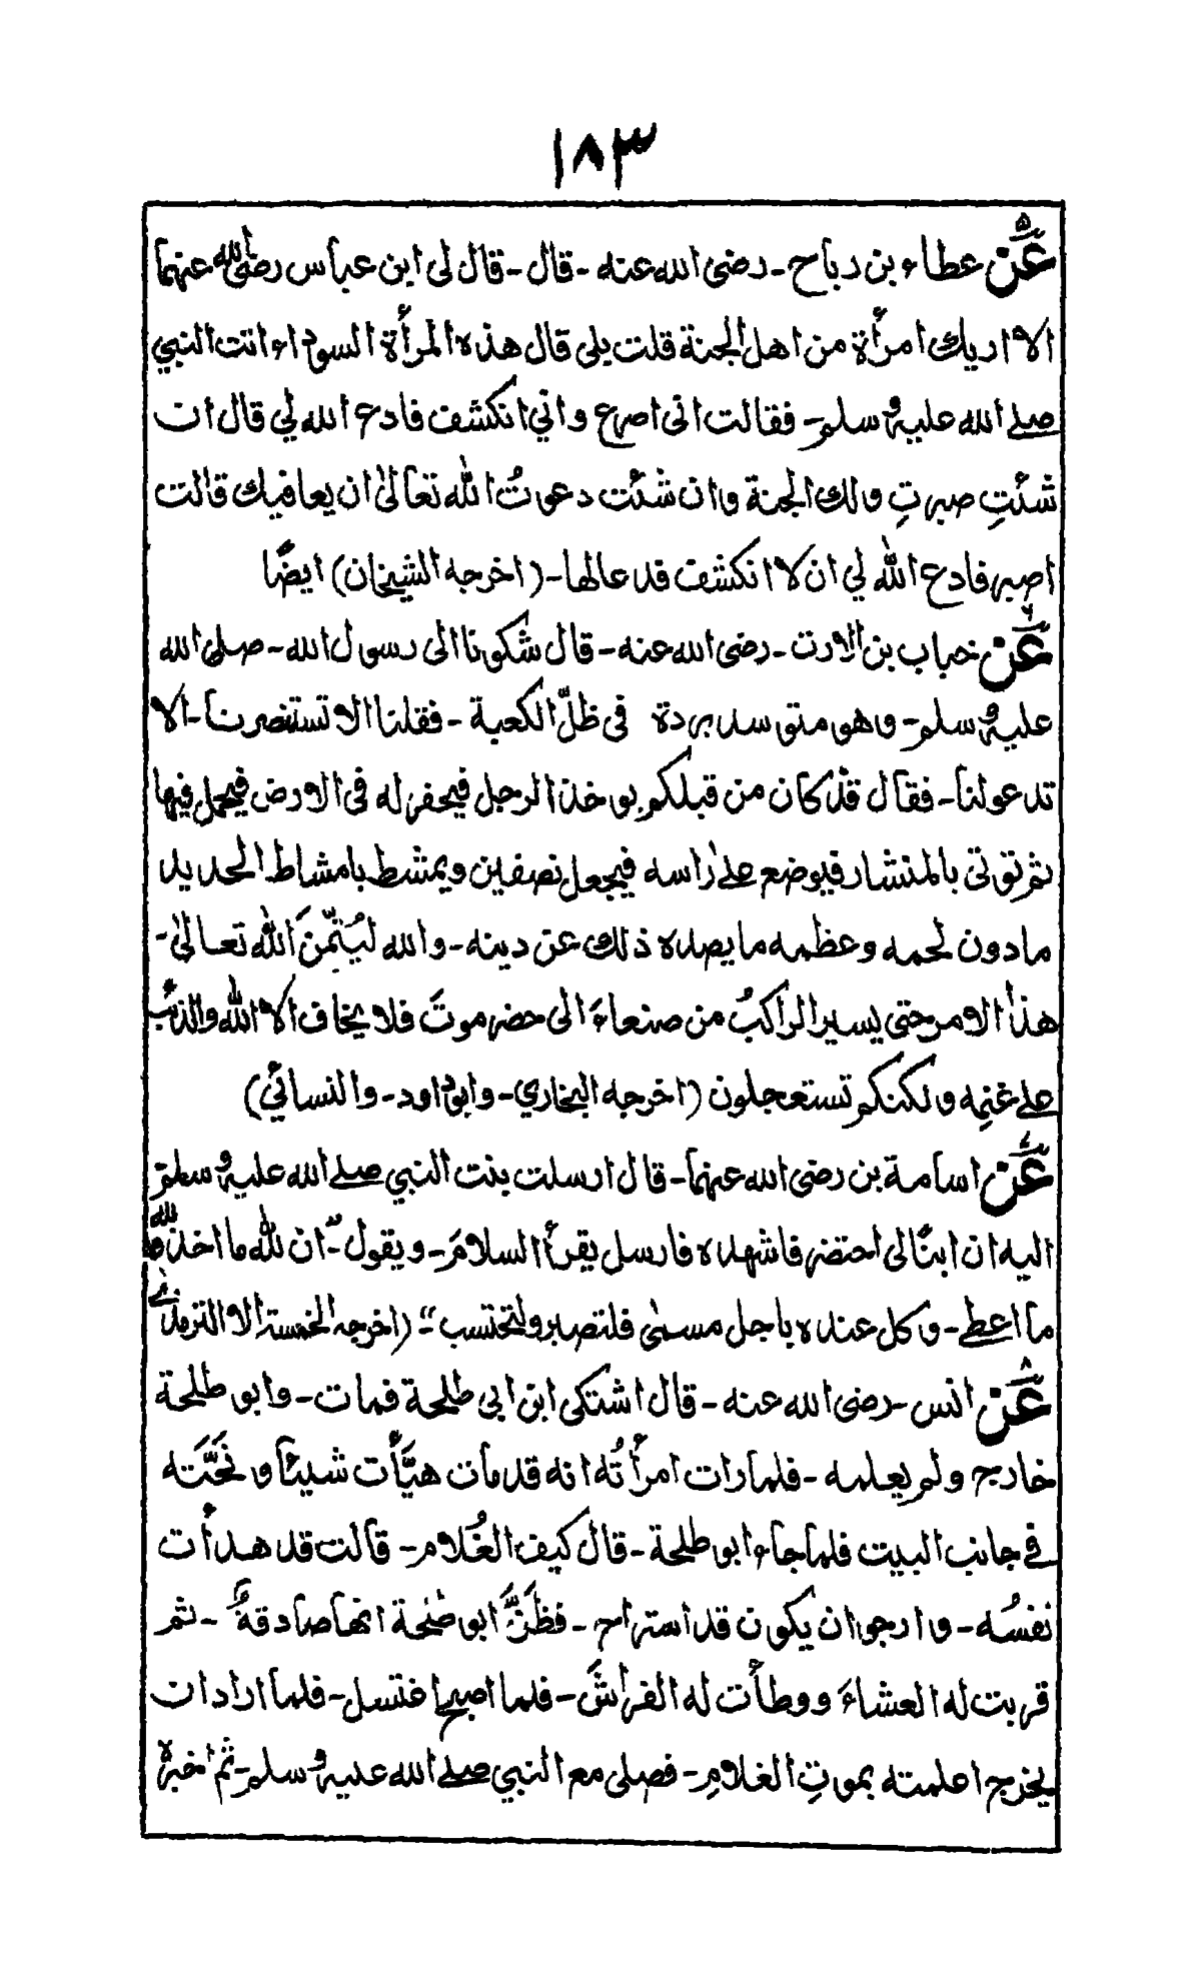 ١٨٣
٥ عن عطاء بن رباح - رضی الله عنه - قال - قال لی ابن عباس رضی الله عنهما
الا اریك امرأة من اهل الجنة قلت بلی قال هذه المرأة السوداء انت النبي
صلے الله علیه و سلم - فقالت انی اصرع واني انکشف فادع الله لي قال ان
شئتِ صبرتِ ولك الجنة وان شئت دعوتُ الله تعالیٰ ان یعافیك قالت
اصبر فادع الله لي ان لا انکشف فدعا لها - (اخرجه الشیخان) ایضًا
٦ عن خباب بن الارت - رضی الله عنه - قال شکونا الی رسول الله - صلی الله
علیه و سلم - وهو متوسد بردة فی ظلّ الکعبة - فقلنا الا تستنصر نا - الا
تدعولنا - فقال قد کان من قبلکم یوخذ الرجل فیحفر له فی الارض فیجمل فیها
ثم توتی بالمنشار فیوضع علےٰ راسه فیجعل نصفین ویمشط بامشاط الحدید
مادون لحمه وعظمه ما یصده ذلك عن دینه - والله لیُتمّنَ الله تعالیٰ -
هذا الامر حتی یسیر الراکبُ من صنعاءَ الی حضرموتَ فلا یخاف الا الله والذئب
علے غنمِه ولکنکم تستعجلون (اخرجه البخاري - وابوداود - والنسائي)
٧ عن اسامة بن رضی الله عنهما - قال ارسلت بنت النبي صلے الله علیه و سلم
الیه ان ابنًا لی احتضر فاشهده فارسل یقرأ السلامَ - ویقول - "ان لله ما اخذ ولله
ما اعطے - وکل عنده باجل مسمیٰ فلتصبر ولتحتسب" - (اخرجه الخمسة الا الترمذی
٨ عن انس - رضی الله عنه - قال اشتکی ابن ابی طلحة فمات - وابو طلحة
خارج ولم یعلمه - فلما رات امرأتُه انه قد مات هیَّأت شیئًا ونَحَّتَه
فی جانب البیت فلما جاء ابو طلحة - قال کیف الغُلام - قالت قد هدأت
نفسُه - وارجو ان یکون قد استراح - فظَنَّ ابو طلحة انها صادقةٌ - ثم
قربت له العشاءَ ووطأت له الفراشَ - فلما اصبح اغتسل - فلما اراد ان
یخرج اعلمته بموتِ الغلامِ - فصلی مع النبي صلے الله علیه و سلم - ثم اخبرہ